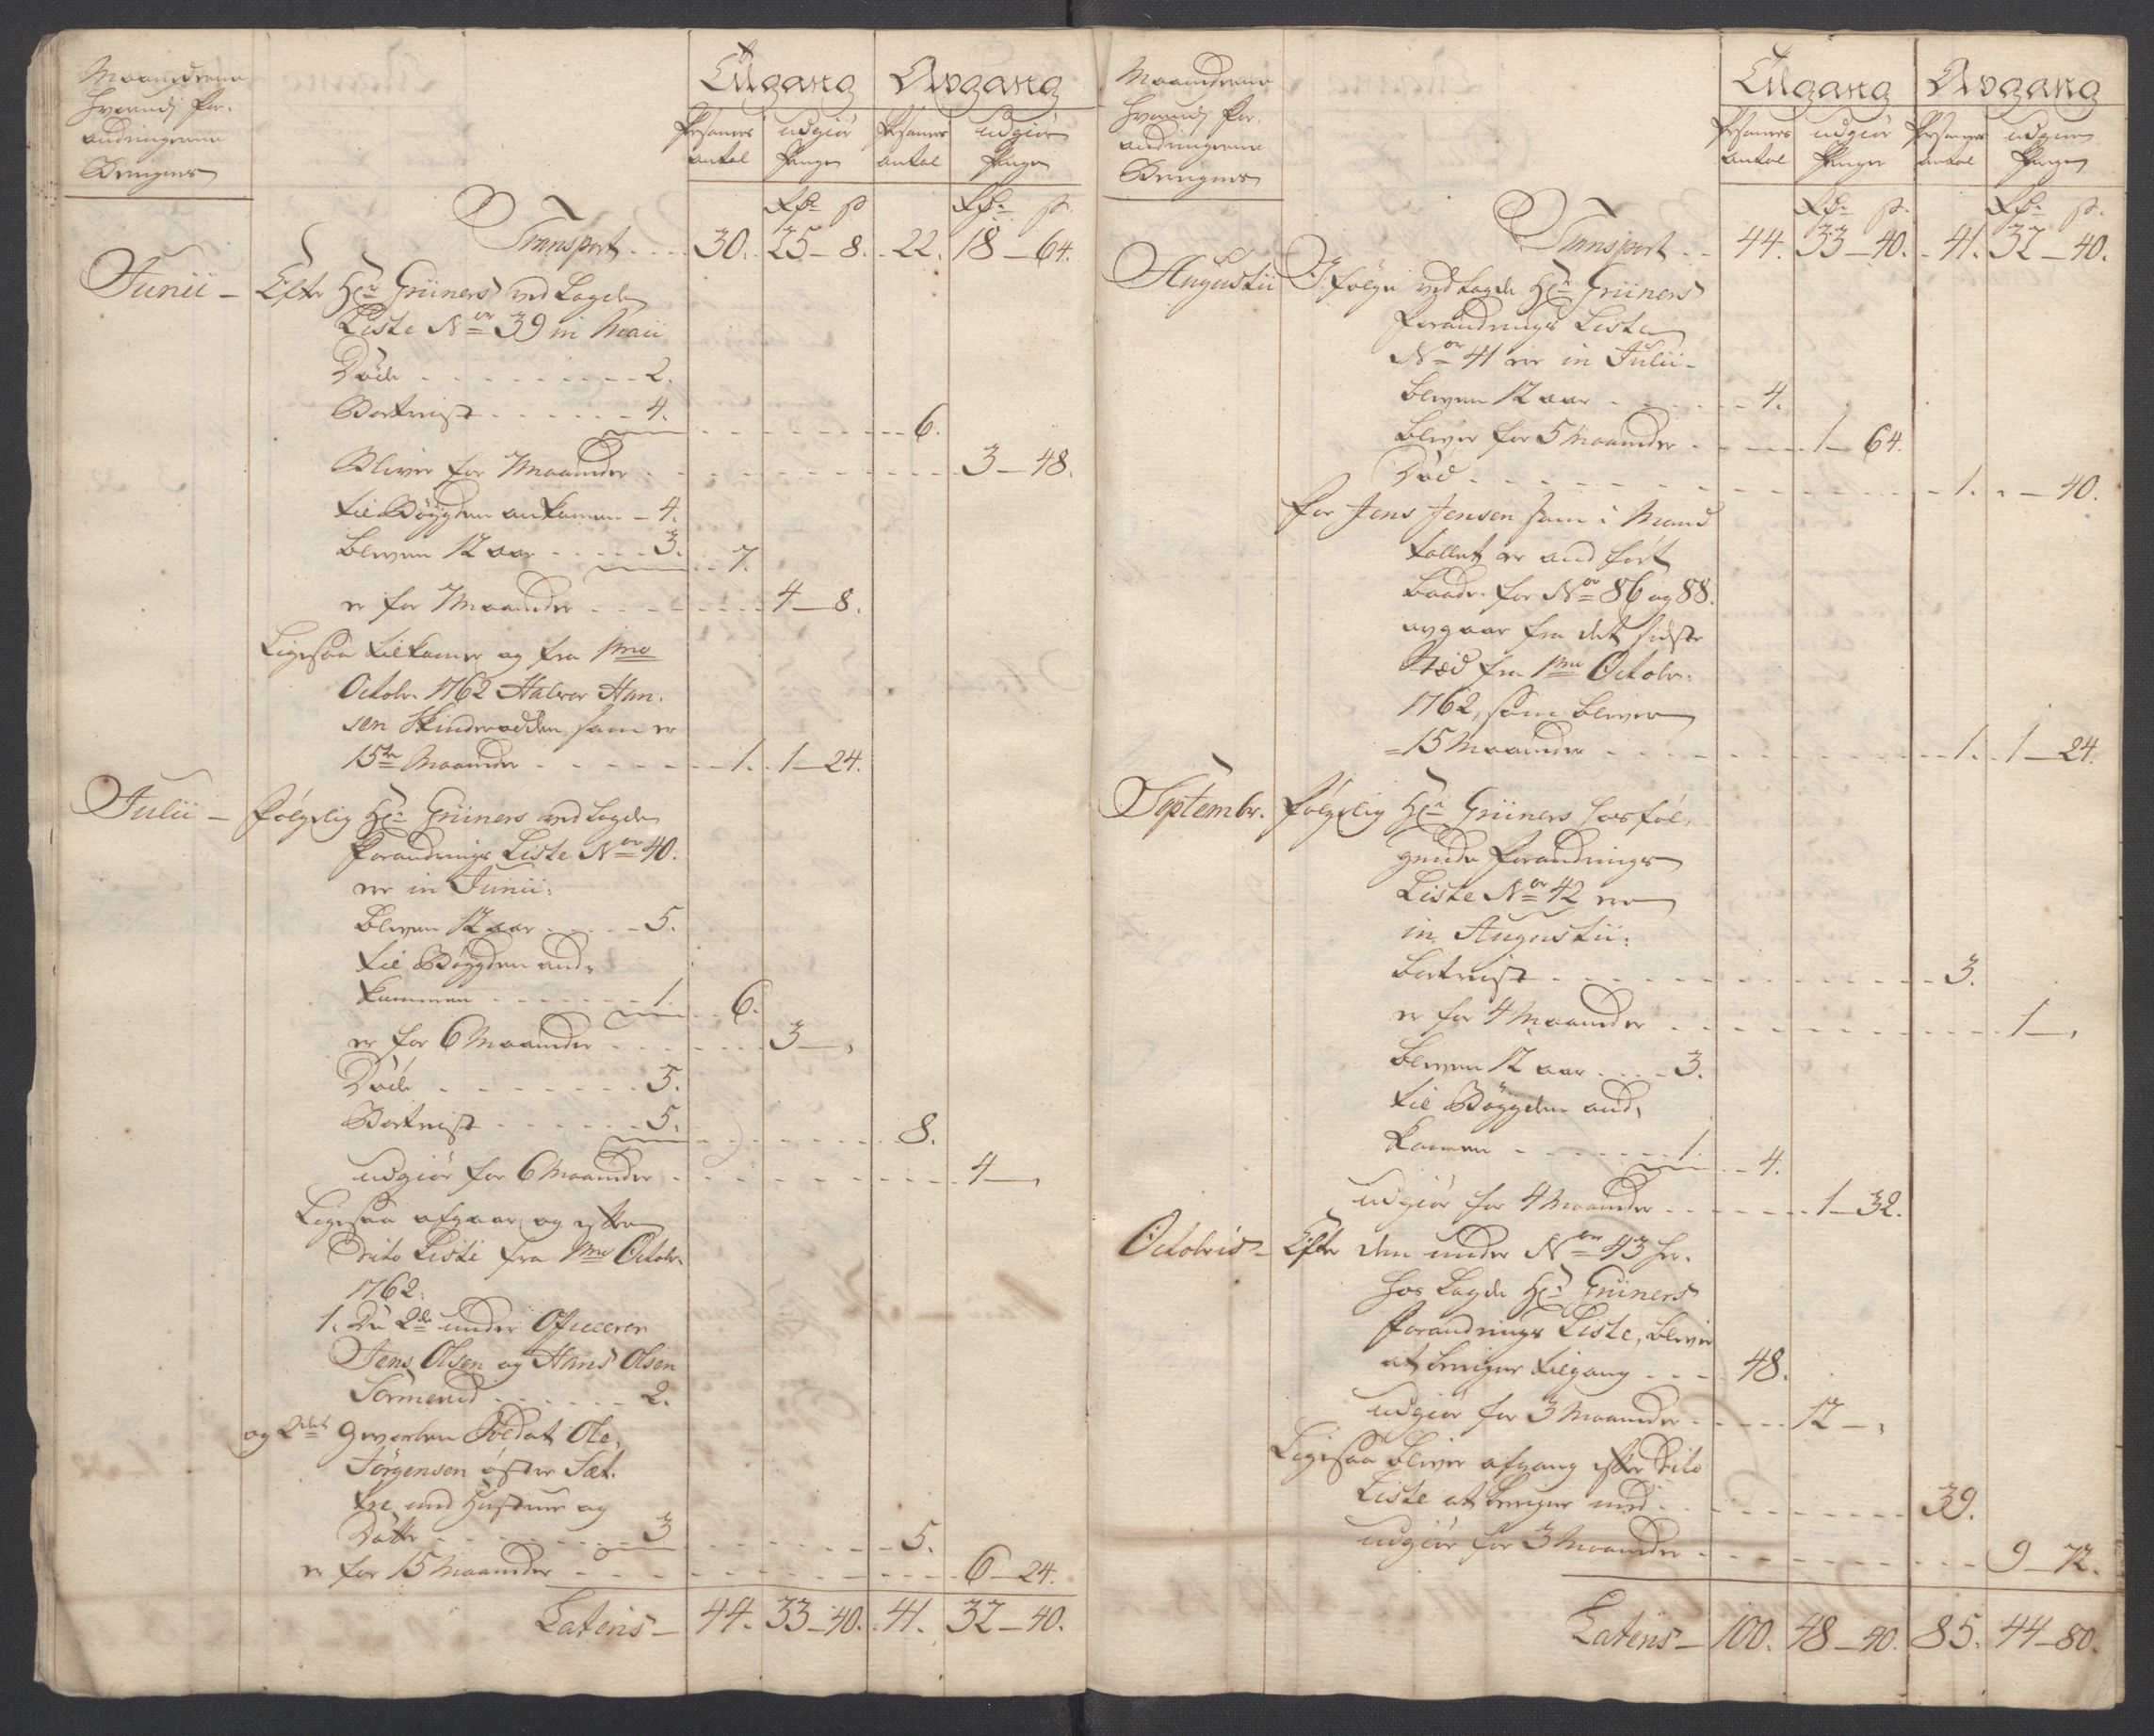 Maanederne
hvorudj For-
andringerne
Beregnes
Tilgang Avgang
Persohners antal udgiør Penge Persohners antal udgiør Penge
Rdr ß Rdr ß
Transport 30. 25 - 8. 22. 18 - 64.
Junii - Efter Hr Grüners vedlagde
Liste No 39 in Maii
Døde 2.
Bortreist 4.
6.
Bliver for 7 Maaneder 3 - 48.
til Bøygden ankomen - 4.
bleven 12 aar 3. 7.
er for 7 Maaneder 4 - 8.
Ligesaa tilkomer og fra 1mo
Octobr. 1762 Halvor Han-
sen Skinderødden som er
15ten Maaneder 1. 1 - 24.
Julii - følgelig Hr Grüners vedlagde
forandrings Liste No 40.
er in Junii:
bleven 12 aar 5.
til Bøygden and-
kommen 1. 6.
er for 6 Maaneder 3 -
Døde 3.
Bortreist 5.
8.
udgiør for 6 Maaneder 4 -
Ligesaa afgaar og efter
dito Liste fra 1mo Octobr.
1762.
1. De 2de under Officerer
Jens Olsen og Hans Olsen
Sørmered 2.
og 2det Gevorben Soldat Ole
Jørgensen øster Sæt-
tre med Hustrue og
Datter 3
5.
er for 15 Maaneder 6 - 24.
Lateris - 44. 33 - 40. 41. 32 - 40.
Maanederne
hvorudj For-
andringerne
Beregnes
Tilgang Avgang
Persohners antal udgiør Penge Persohners antal udgiør Penge
Rdr ß. Rdr ß.
Transport 44. 33 - 40. 41. 32 - 40.
Augustii Ifølge vedlagde Hr Grüners
forandrings Liste
No 41 er in Julii -
bleven 12 aar 4.
bliver for 5 Maaneder 1 - 64.
Død 1. - 40.
for Jens Jensen som i Mand
tallet er andført
baade for No 86 og 88.
avgaar fra det sidste
stæd fra 1mo Octobr:
1762, som bliver
15 Maaneder 1. 1 - 24.
Septembr. følgelig Hr Grüners hosføl-
gende forandrings
Liste No 42 er
in Augustii:
bortreist 3.
er for 4 Maaneder 1 -
bleven 12 aar 3.
til Bøygden and-
komen 1. 4.
udgiør for 4 Maaneder 1 - 32.
Octobris - Efter den under No 43 her-
hos lagde Hr Grüners
forandrings Liste, bliver
at beregne tilgang 48.
udgiør for 3 Maaneder 12 -
Ligesaa bliver afgang efter dito
Liste at beregne med 39.
udgiør for 3 Maaneder 9 - 72.
Lateris - 100. 48 - 40. 85. 44 - 80.